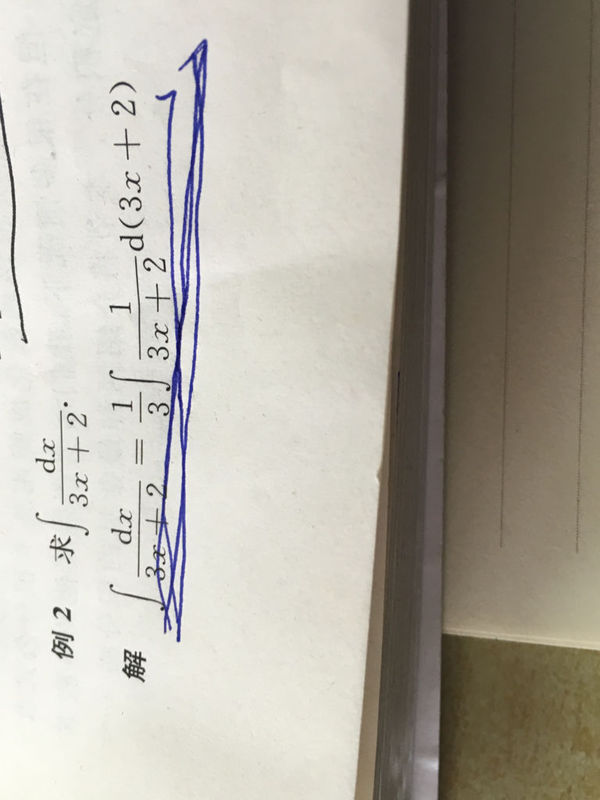 例 2 求∫dx/(3x + 2).
解 ∫dx/(3x + 2) = 1/3∫1/(3x + 2)d(3x + 2)